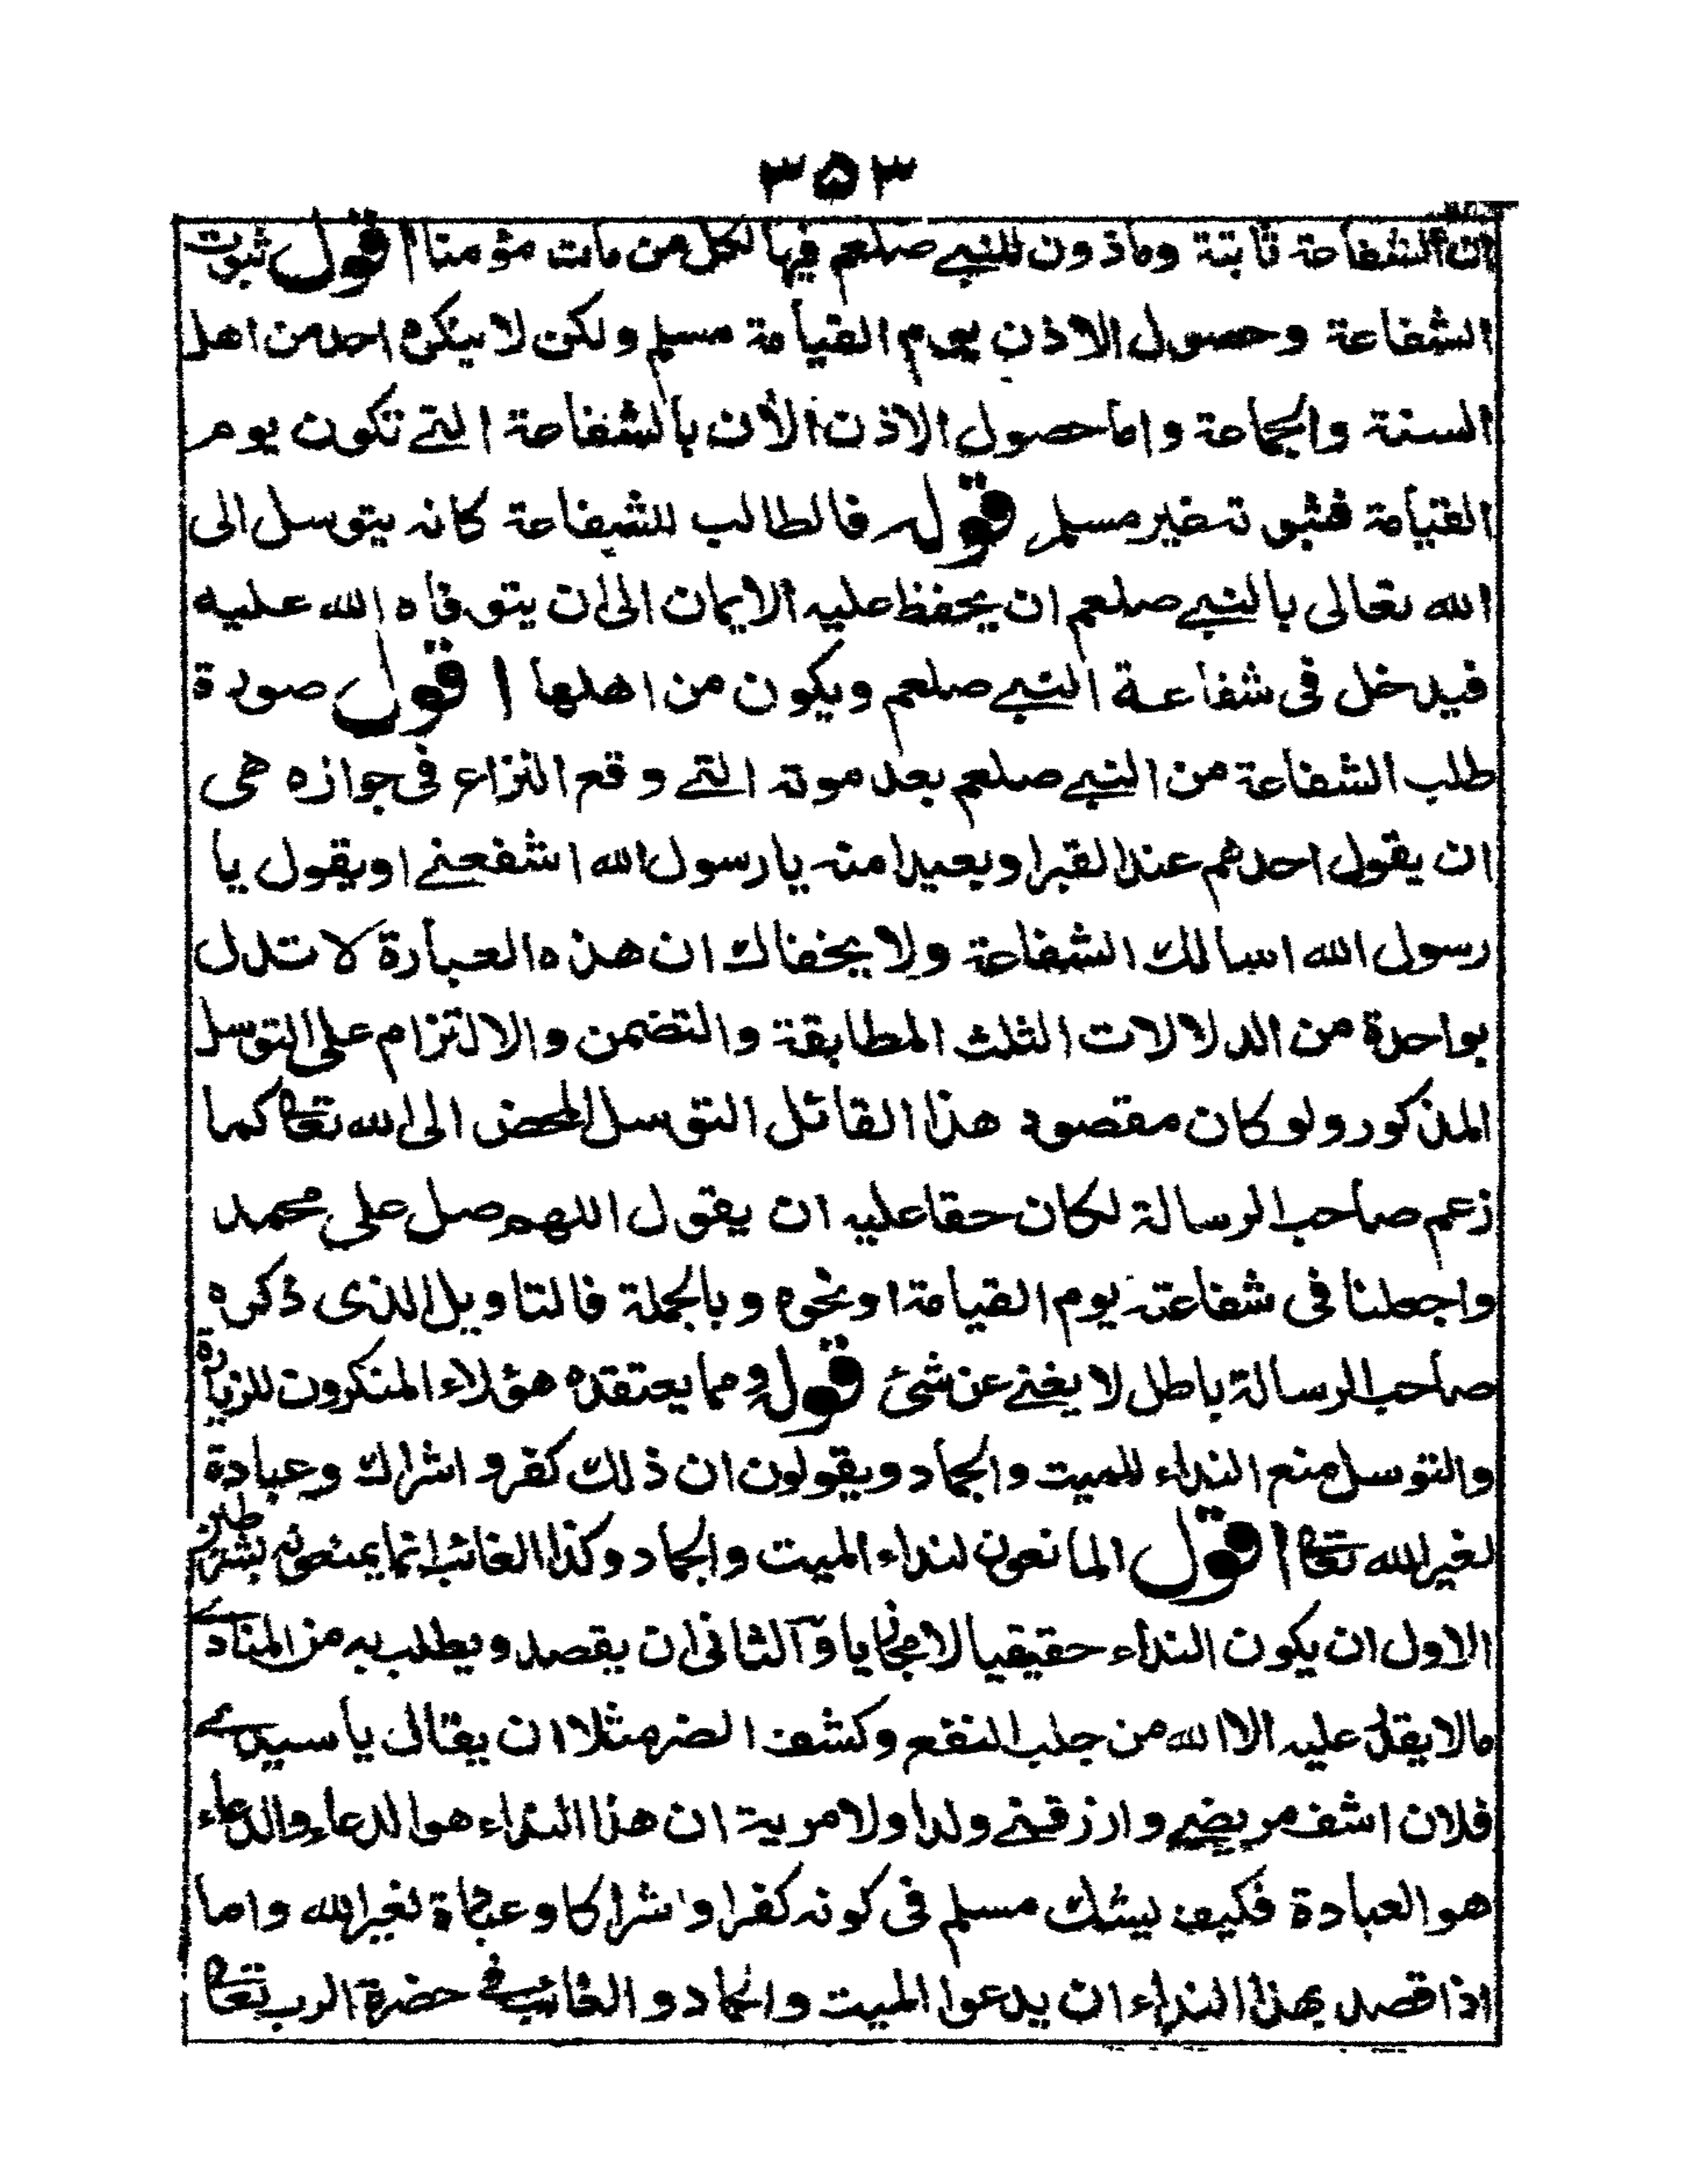 ٣٥٣
ان الشفاعة ثابتة وماذون للنبي صلعم فيها لكل من مات مؤمنا اقول ثبوت
الشفاعة وحصول الاذن يوم القيامة مسلم ولكن لا ينكره احد من اهل
السنة والجماعة واما حصول الاذن الأن بالشفاعة التي تكون يوم
القيامة فثبوته غير مسلم قوله فالطالب للشفاعة كانه يتوسل الى
الله تعالى بالنبي صلعم ان يحفظ عليه الايمان الى ان يتوفاه الله عليه
فيدخل فى شفاعة النبي صلعم ويكون من اهلها اقول صورة
طلب الشفاعة من النبي صلعم بعد موته التي وقع النزاع فى جوازه هى
ان يقول احدهم عند القبر او بعيدا منه يا رسول الله اشفعني او يقول يا
رسول الله اسالك الشفاعة ولا يخفاك ان هذه العبارة لا تدل
بواحدة من الدلالات الثلث المطابقة والتضمن والالتزام على التوسل
المذكور ولو كان مقصود هذا القائل التوسل المحض الى الله تعالى كما
زعم صاحب الرسالة لكان حقا عليه ان يقول اللهم صل على محمد
واجعلنا فى شفاعته يوم القيامة او نحوه وبالجملة فالتاويل الذى ذكره
صاحب الرسالة باطل لا يغني عن شئ قوله ومما يعتقده هؤلاء المنكرون للزيارة
والتوسل منع النداء للميت والجماد ويقولون ان ذلك كفر واشراك وعبادة
لغير الله تعالى اقول المانعون لنداء الميت والجماد وكذا الغائب انما يمنعونه بشرطين
الاول ان يكون النداء حقيقيا لا مجازيا و الثانى ان يقصد ويطلب به من المنادى
مالا يقدر عليه الا الله من جلب النفع وكشف الضر مثلا ان يقال يا سيدي
فلان اشف مريضي وارزقني ولدا ولا مرية ان هذا النداء هو الدعاء والدعاء
هو العبادة فكيف يشك مسلم فى كونه كفرا واشراكا وعبادة لغير الله واما
اذا قصد بهذا النداء ان يدعوا الميت والجماد و الغائب في حضرة الرب تعالى